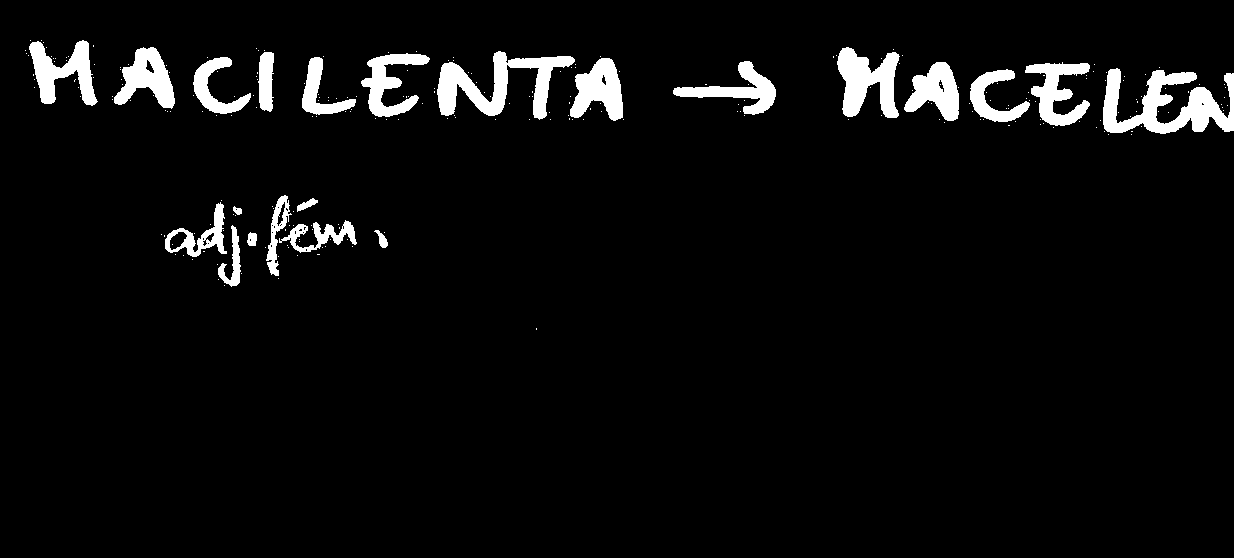 MACILENTA → MACELEN
adj. fém.